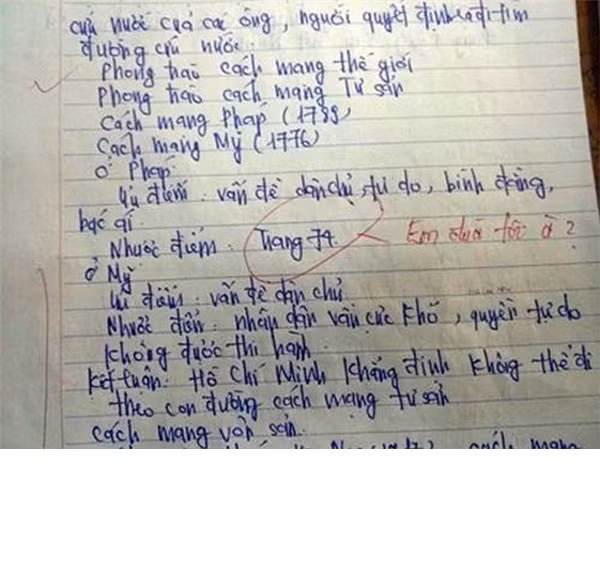 cứu nước của cái ông, người quyết định ra đi tìm
đường cứu nước.
Phong trào cách mạng thế giới
Phong trào cách mạng Tư sản
Cách mạng Pháp (1789)
Cách mạng Mỹ (1776)
Ở Pháp
Ưu điểm: vấn đề dân chủ, tự do, bình đẳng,
bác ái
Nhược điểm: Trang 74. Em đùa tôi à?
Ở Mỹ
Ưu điểm: vấn đề dân chủ
Nhược điểm: nhân dân vẫn cực khổ, quyền tự do
không được thi hành
Kết luận: Hồ Chí Minh khẳng định không thể đi
theo con đường cách mạng tư sản
cách mạng vô sản.
cách mạng